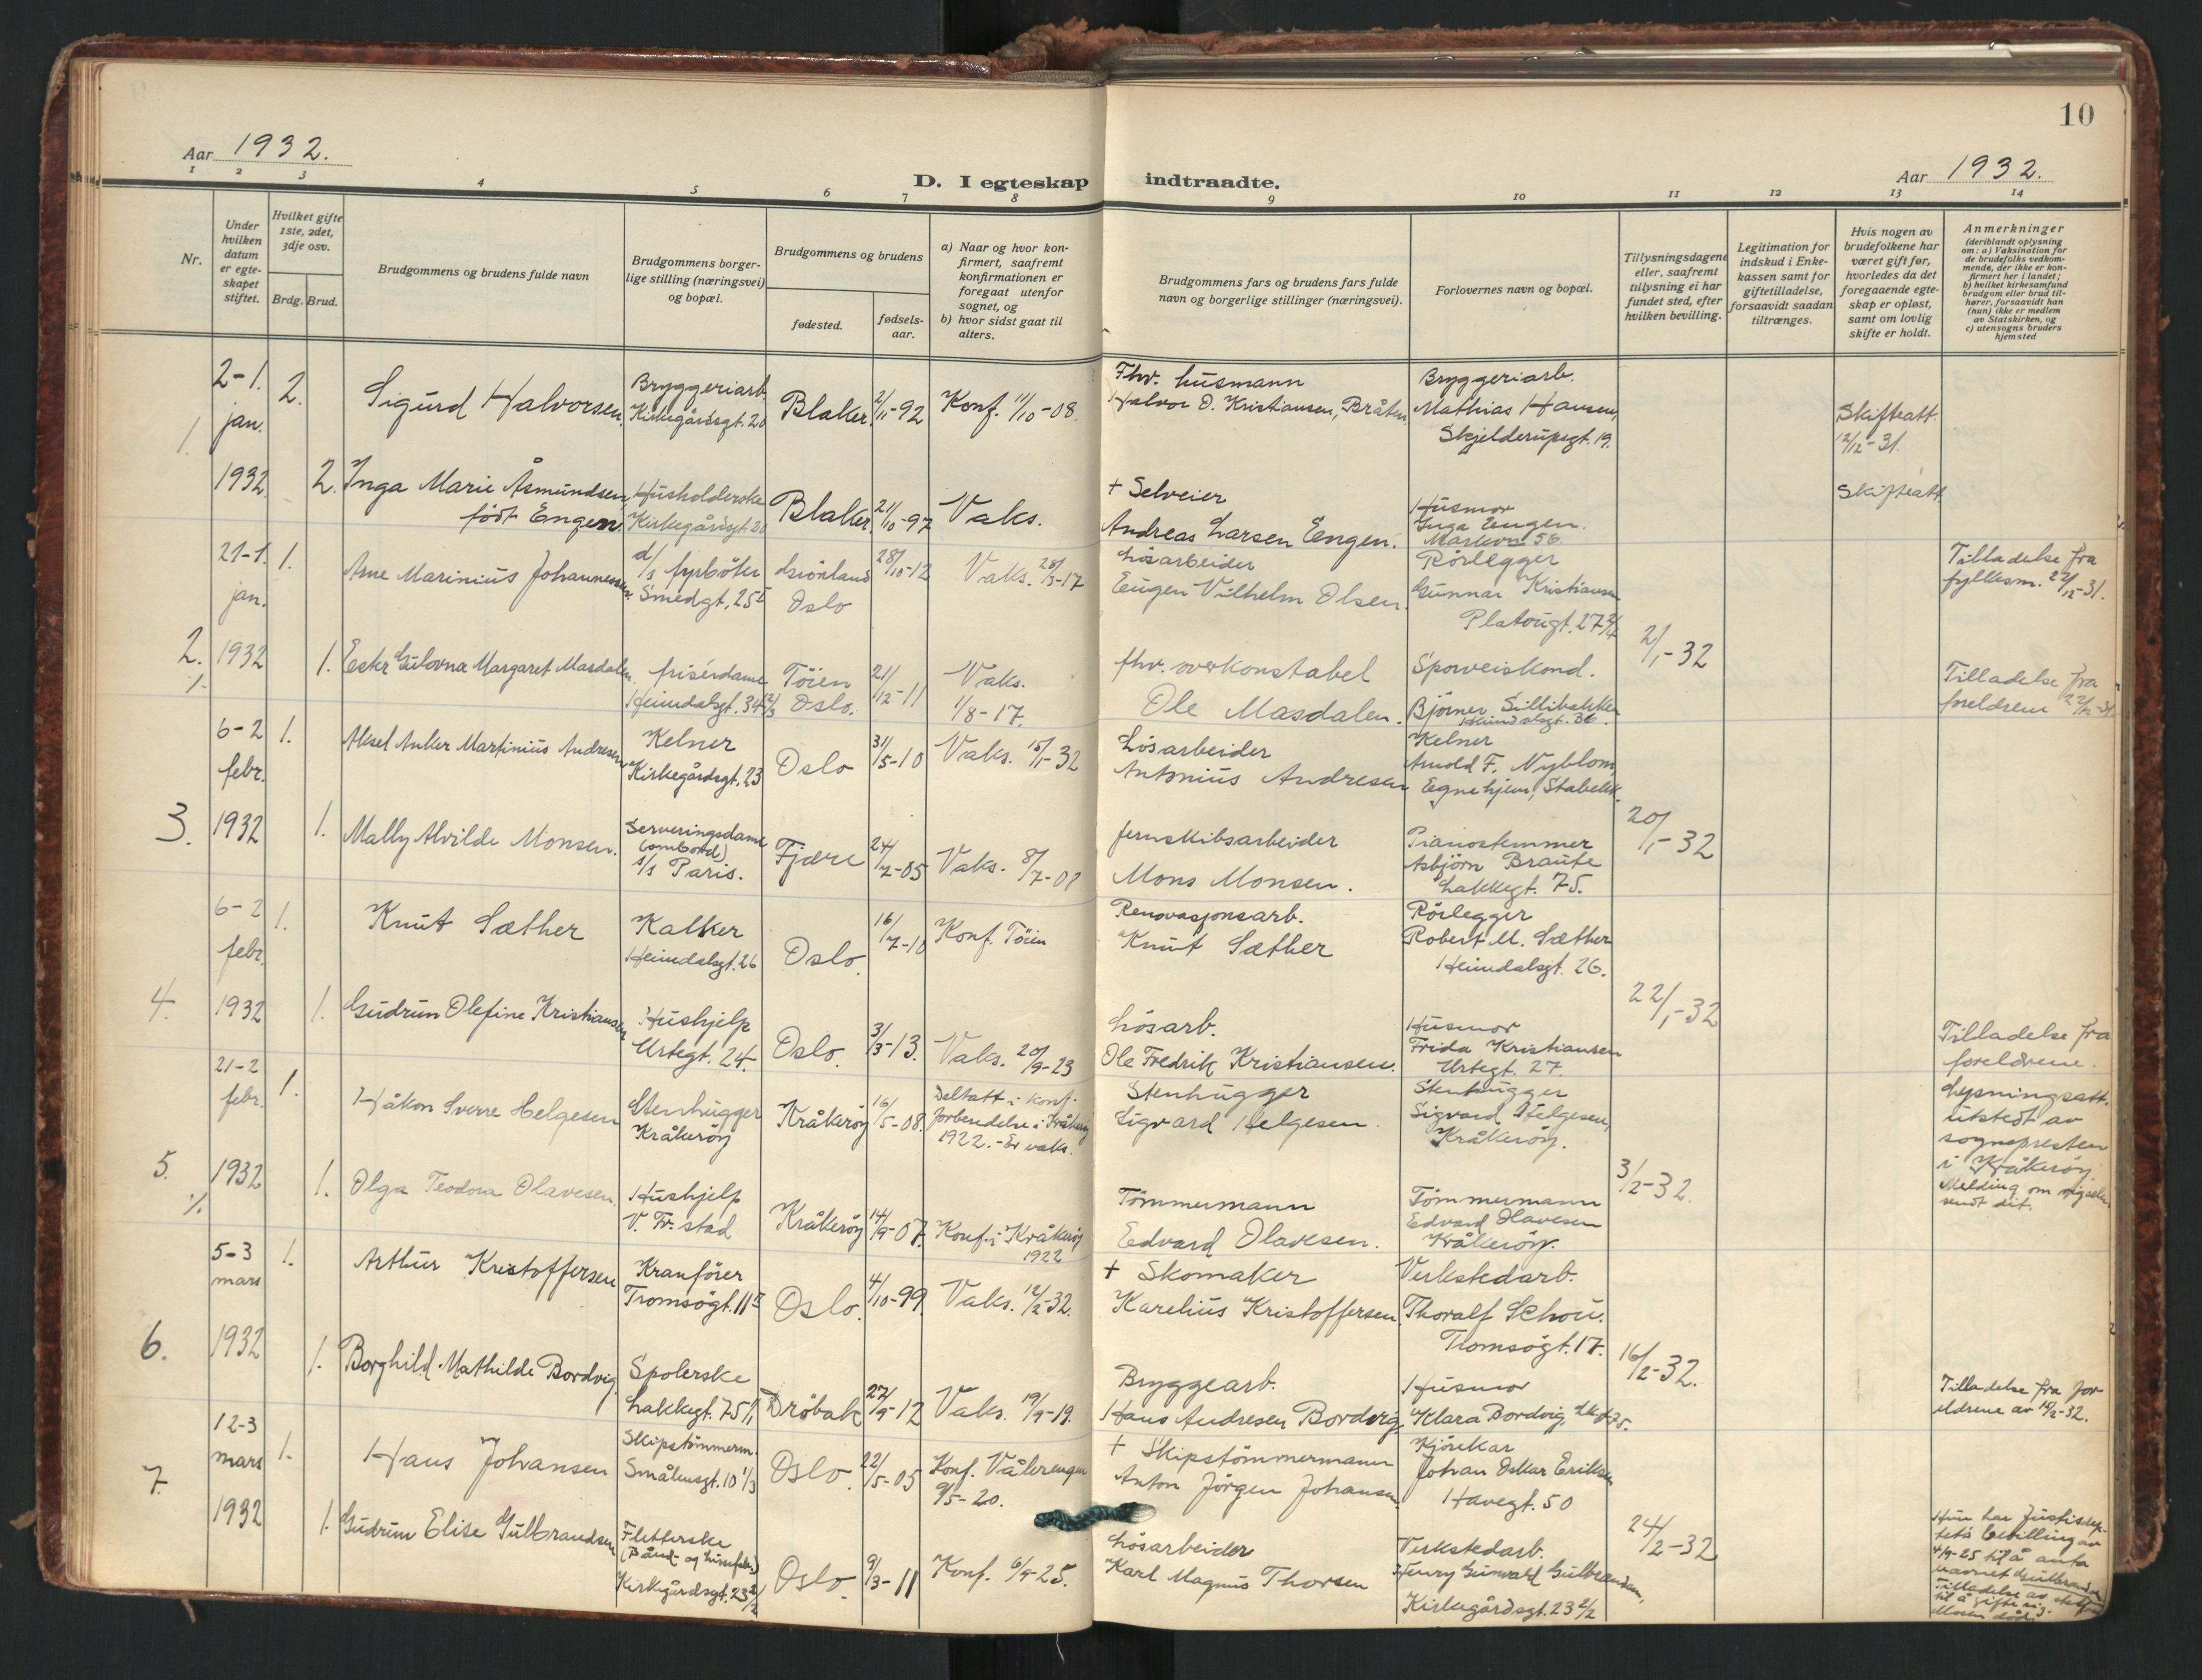 10
Aar 1932.
Aar 1932.
D. I egteskap indtraadte.
1 2 3 4 5 6 7 8 9 10 11 12 13 14
Nr.
Under hvilken datum er egteskapet stiftet.
Hvilket gifte 1ste, 2det, 3dje osv.
Brdg. Brud.
Brudgommens og brudens fulde navn
Brudgommens borgerlige stilling (næringsvei) og bopæl.
Brudgommens og brudens
fødested.
fødselsaar.
a) Naar og hvor konfirmert, saafremt konfirmationen er foregaat utenfor sognet, og
b) hvor sidst gaat til alters.
Brudgommens fars og brudens fars fulde navn og borgerlige stillinger (næringsvei).
Forlovernes navn og bopæl.
Tillysningsdagene eller, saafremt tillysning ei har fundet sted, efter hvilken bevilling.
Legitimation for indskud i Enkekassen samt for giftetilladelse, forsaavidt saadan tiltrænges.
Hvis nogen av brudefolkene har været gift før, hvorledes da det foregaaende egteskap er opløst, samt om lovlig skifte er holdt.
Anmerkninger
(deriblandt oplysning om: a) Vaksination for de brudefolks vedkommende, der ikke er konfirmert her i landet; b) hvilket kirkesamfund brudgom eller brud tilhører, forsaavidt han (hun) ikke er medlem av Statskirken, og c) utensogns bruders hjemsted
1.
2-1. jan. 1932
2. Sigurd Halvorsen. Bryggeriarb. Kirkegårdsgt. 20 Blaker. 2/11-92 Konf. 11/10-08.
Fhv. husmann Halvor O. Kristiansen, Bråten. Bryggeriarb. Mathias Hansen, Skjelderupsgt. 19. Skifteatt. 12/12-31.
2. Inga Marie Åsmundsen, født Engen. Husholderske Kirkegårdsgt. 20 Blaker. 21/10-97 Vaks.
+ Selveier Andreas Larsen Engen. Husmor Inga Engen. Markvn 56 Skifteatt.
2.
21-1. jan. 1932
1. Arne Marinius Johannessen. d/s fyrbøter Smedgt. 25 Oslo 28/10-12 Vaks.
Løsarbeider Eugen Vilhelm Olsen. Rørlegger Gunnar Kristiansen Platougt. 27 2/1-32 Tilladelse fra fyllesm. 22/12-31.
1. Ester Gulovna Margaret Masdalen. frisérdame Heimdalsgt. 34 Tøien Oslo. 21/12-11 Vaks. 1/8-17.
fhv. overkonstabel Ole Masdalen. Sporveiskond. Bjørner Heimdalsgt. Tilladelse fra foreldrene
3.
6-2 febr. 1932
1. Aksel Anker Martinius Andresen, Kelner Kirkegårdsgt. 23 Oslo 31/5-10 Vaks. 15/1-32
Løsarbeider Antonius Andresen Kelner Arnold F. Nyblom, Egnehjem, Stabekk. 20/1-32
1. Mally Alvilde Monsen. Serveringsdame (ombord) s/s Paris. Fjære 24/7-05 Vaks. 8/7-08
Jernskibsarbeider Mons Monsen. Pianostemmer Asbjørn Braute Lakkegt. 75.
4.
6-2 febr. 1932
1. Knut Sæther Kalker Heimdalsgt. 26 Oslo. 16/7-10 Konf. Tøien
Renovasjonsarb. Knut Sæther Rørlegger Robert M. Sæther Heimdalsgt. 26. 22/1-32
1. Gudrun Olefine Kristiansen Hushjelp Urtegt. 24. Oslo. 3/3-13. Vaks. 20/9-23
Løsarb. Ole Fredrik Kristiansen. Husmor Frida Kristiansen Urtegt. 27. Tilladelse fra foreldrene.
5.
21-2 febr. 1932
1. Håkon Sverre Helgesen Stenhugger Kråkerøy Kråkerøy 16/5-08. Deltatt i konf. forberedelse i Kråkerøy 1922. - Er vaks.
Stenhugger Sigvard Helgesen. Stenhugger Sigvard Helgesen, Kråkerøy. 3/2-32. Lysningsatt. utstedt av sognepresten i Kråkerøy Melding om vigselen sendt dit.
1. Olga Teodora Olavesen. Hushjelp V. Fr.stad Kråkerøy 14/9-07. Konf. i Kråkerøy 1922
Tømmermann Edvard Olavesen. Tømmermann Edvard Olavesen Kråkerøy.
6.
5-3 mars 1932
1. Arthur Kristoffersen Kranfører Tromsøgt. 11 Oslo. 4/10-99. Vaks. 12/2-32.
+ Skomaker Karelius Kristoffersen. Verkstedarb. Thoralf Schou. Tromsøgt. 17. 16/2-32.
1. Borghild Mathilde Bordvig. Spolerske Lakkegt. 75 Drøbak 27/9-12 Vaks. 19/9-19.
Bryggearb. Hans Andresen Bordvig, Husmor Klara Bordvig, Tilladelse fra foreldrene av
7.
12-3 mars 1932
1. Hans Johansen Skipstømmerm. Smålensgt. 10 1/3 Oslo. 22/5-05 Konf. Vålerengen 9/5-20.
+ Skipstømmermann Anton Jørgen Johansen. Kjørekar Johan Oskar Eriksen Havegt. 50 24/2-32
1. Gudrun Elise Gulbrandsen Fletterske (Bånd- og Kirkegårdsgt. 23 2/2 Oslo. 9/3-11 Konf. 6/9-25.
Løsarbeider Karl Magnus Thorsen Verkstedarb. Henry Gunvald Gulbrandsen, Kirkegårdsgt. 23 2/2 Hun har bevilling av 4/9-25 til å anta navnet Gulbrandsen Tilladelse av til å gifte sig. Moren død.